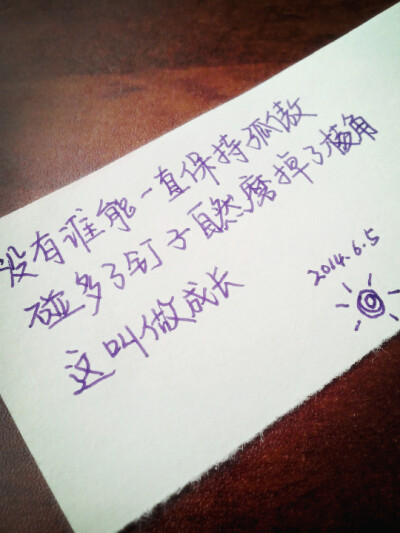 没有谁能一直保持孤傲
碰多了钉子自然磨掉了棱角
这叫做成长
2014.6.5